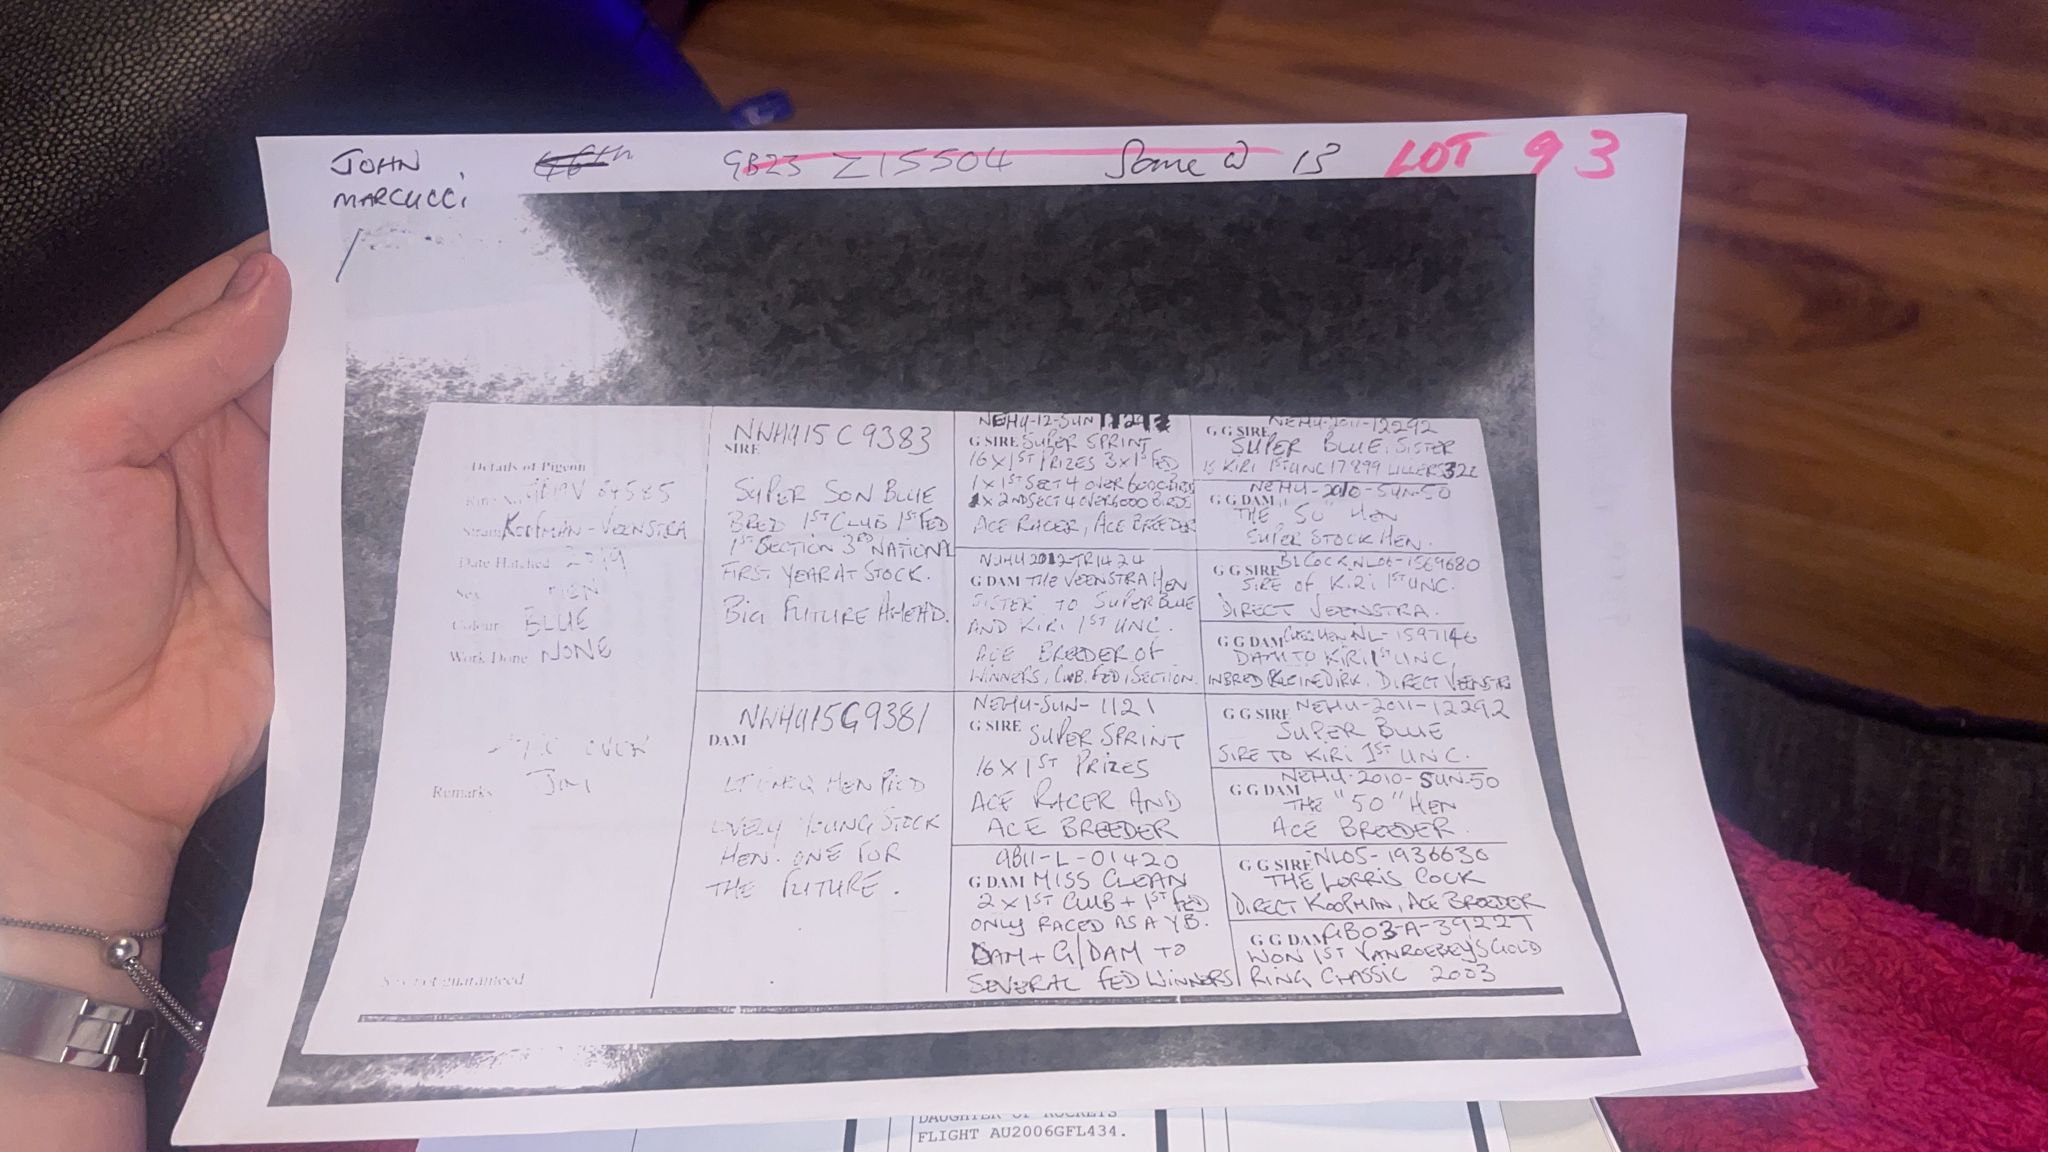 JOHN
MARCUCCI
GB23 Z15504
LOT 93
Details of Pigeon
Strain Koopman-Veenstra
Date Hatched 2019
Sex HEN
Colour BLUE
Work Done NONE
Remarks JIM
Sex not guaranteed
NWHU15C9383
SIRE
SUPER SON BLUE
BRED 1ST CLUB 1ST FED
1ST SECTION 3RD NATIONAL
FIRST YEAR AT STOCK.
BIG FUTURE AHEAD.
NWHU15G9381
DAM
HEN PIED
LOVELY YOUNG STOCK
HEN. ONE FOR
THE FUTURE.
NEHU-12-SUN
G SIRE SUPER SPRINT
16 X 1ST PRIZES 3 X 1ST FED
1 X 1ST SECT 4 OVER 6000 BIRDS
1 X 2ND SECT 4 OVER 6000 BIRDS
ACE RACER, ACE BREEDER
NJHU 2012-TR1424
G DAM THE VEENSTRA HEN
SISTER TO SUPER BLUE
AND KIRI 1ST UNC.
ACE BREEDER OF
WINNERS, CLUB, FED, SECTION.
NEHU-SUN-1121
G SIRE SUPER SPRINT
16 X 1ST PRIZES
ACE RACER AND
ACE BREEDER
GB11-L-01420
G DAM MISS CLEAN
2 X 1ST CLUB + 1ST FED
ONLY RACED AS A YB.
DAM + G/DAM TO
SEVERAL FED WINNERS
NEHU-2011-12292
G G SIRE SUPER BLUE, SISTER
IS KIRI 1ST UNC 17899 LILLERS
NEHU-2010-SUN-50
G G DAM THE "50" HEN
SUPER STOCK HEN.
G G SIRE BLCOCK NL06-1569680
SIRE OF KIRI 1ST UNC.
DIRECT VEENSTRA.
G G DAM CHEQ HEN NL-1597146
DAM TO KIRI 1ST UNC
INBRED KLEINE DIRK. DIRECT VEENSTRA
G G SIRE NEHU-2011-12292
SUPER BLUE
SIRE TO KIRI 1ST UNC.
NEHU-2010-SUN-50
G G DAM THE "50" HEN
ACE BREEDER.
G G SIRE NL05-1936630
THE LORRIS COCK
DIRECT KOOPMAN, ACE BREEDER
G G DAM GB03-A-39227
WON 1ST VANROEBEYS GOLD
RING CLASSIC 2003
DAUGHTER OF ROCKETS
FLIGHT AU2006GFL434.